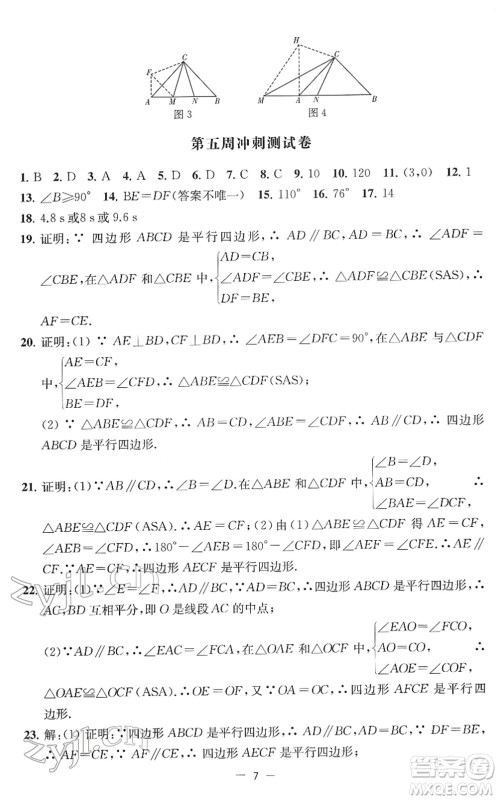 F C A M N B
图3
H C M A N B
图4
第五周冲刺测试卷
1. B 2. D 3. A 4. A 5. D 6. D 7. D 8. C 9. D 10. 120 11. (3,0) 12. 1
13. ∠B≥90° 14. BE=DF(答案不唯一) 15. 110° 16. 76° 17. 14
18. 4.8 s或8 s或9.6 s
19. 证明:∵ 四边形 ABCD 是平行四边形,∴ AD∥BC,∴ ∠ADF=
∠CBE,在△ADF 和△CBE 中,{AD=CB, ∠ADF=∠CBE, DF=BE, ∴ △ADF≌△CBE(SAS),∴
AF=CE.
20. 证明:(1) ∵ AE⊥BD,CF⊥BD,∴ ∠AEB=∠DFC=90°,在△ABE 与△CDF
中,{AE=CF, ∠AEB=∠CFD, BE=DF, ∴ △ABE≌△CDF(SAS);
(2) ∵ △ABE≌△CDF,∴ ∠ABE=∠CDF,∴ AB∥CD,∴ 四边形
ABCD 是平行四边形.
21. 证明:(1)∵AB∥CD,∴∠BAE=∠DCF,在△ABE和△CDF中,{∠B=∠D, AB=CD, ∠BAE=∠DCF, ∴
△ABE≌△CDF(ASA).∴AE=CF;(2)由(1)△ABE≌△CDF 得 AE=CF,
∠AEB=∠CFD,∴180°-∠AEB=180°-∠CFD,即∠AEF=∠CFE,∴AE∥
CF.∵AE=CF,∴四边形 AECF 是平行四边形.
22. 证明:(1)∵AD∥BC,AD=BC,∴四边形ABCD是平行四边形,∴
AC,BD 互相平分,即 O 是线段 AC 的中点;
(2)∵AD∥BC,∴∠EAC=∠FCA,在△OAE 和△OCF 中,{∠EAO=∠FCO, OA=OC, ∠AOE=∠COF, ∴
△OAE≌△OCF(ASA).∴OE=OF,∴四边形 AFCE 是平行四边形.
23. 解:(1) 证明:∵四边形ABCD是平行四边形,四边形AECF是平行四边形,
— 7 —
zyjl.cn
zyjl.cn
答案圈